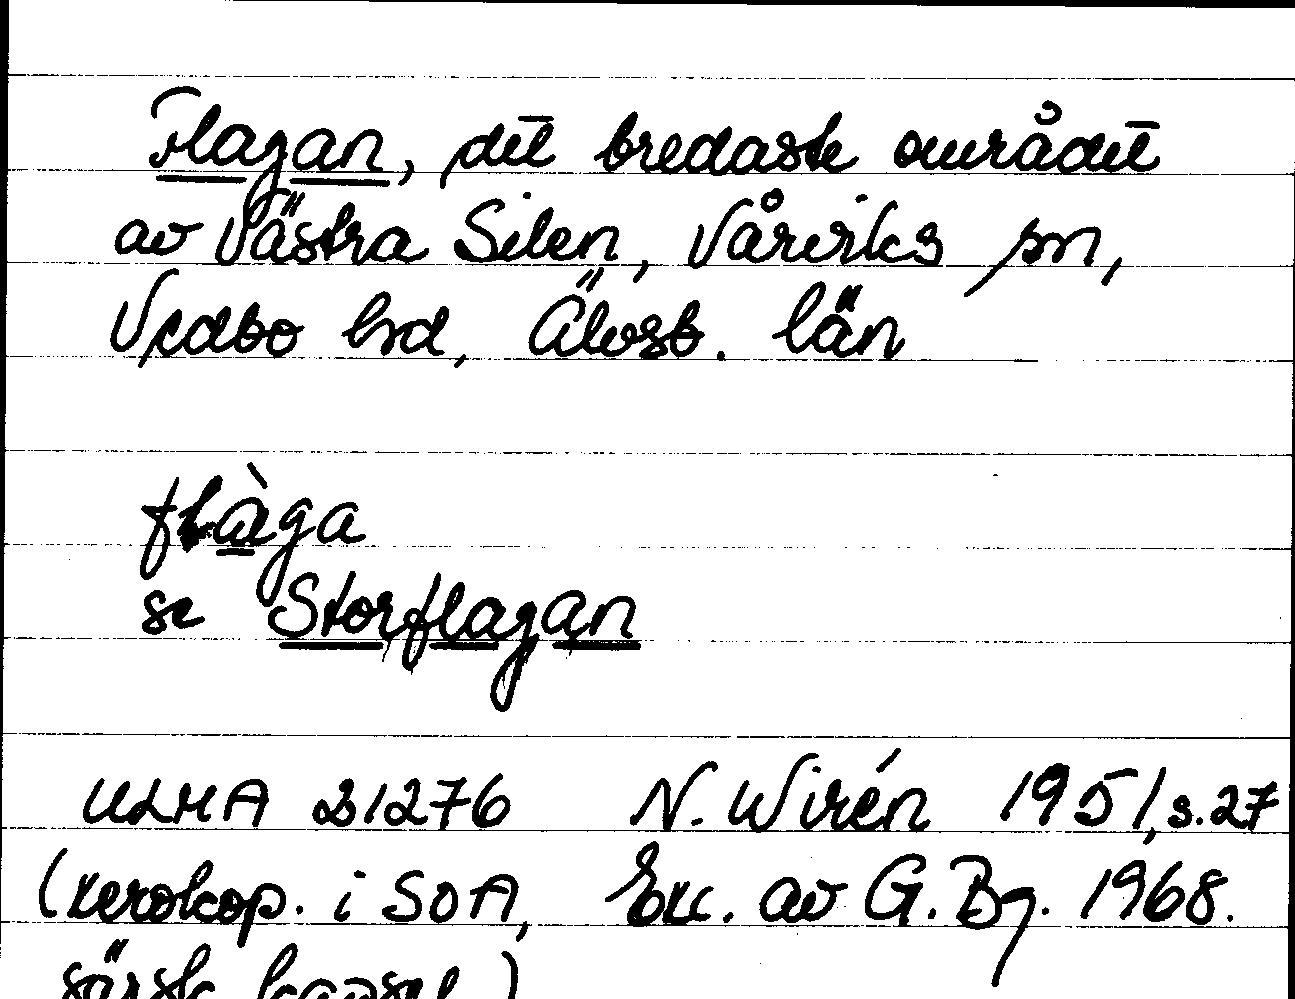 Flagan, det bredaste området
av Västra Silen, Vårviks sn,
Vedbo hd, Älvsb. län
flàga
se Storflagan
ULMA 21276 N. Wirén 1951, s. 27
(xerokop. i SOA, Exc. av G. Bg. 1968.
särsk. kapsel)